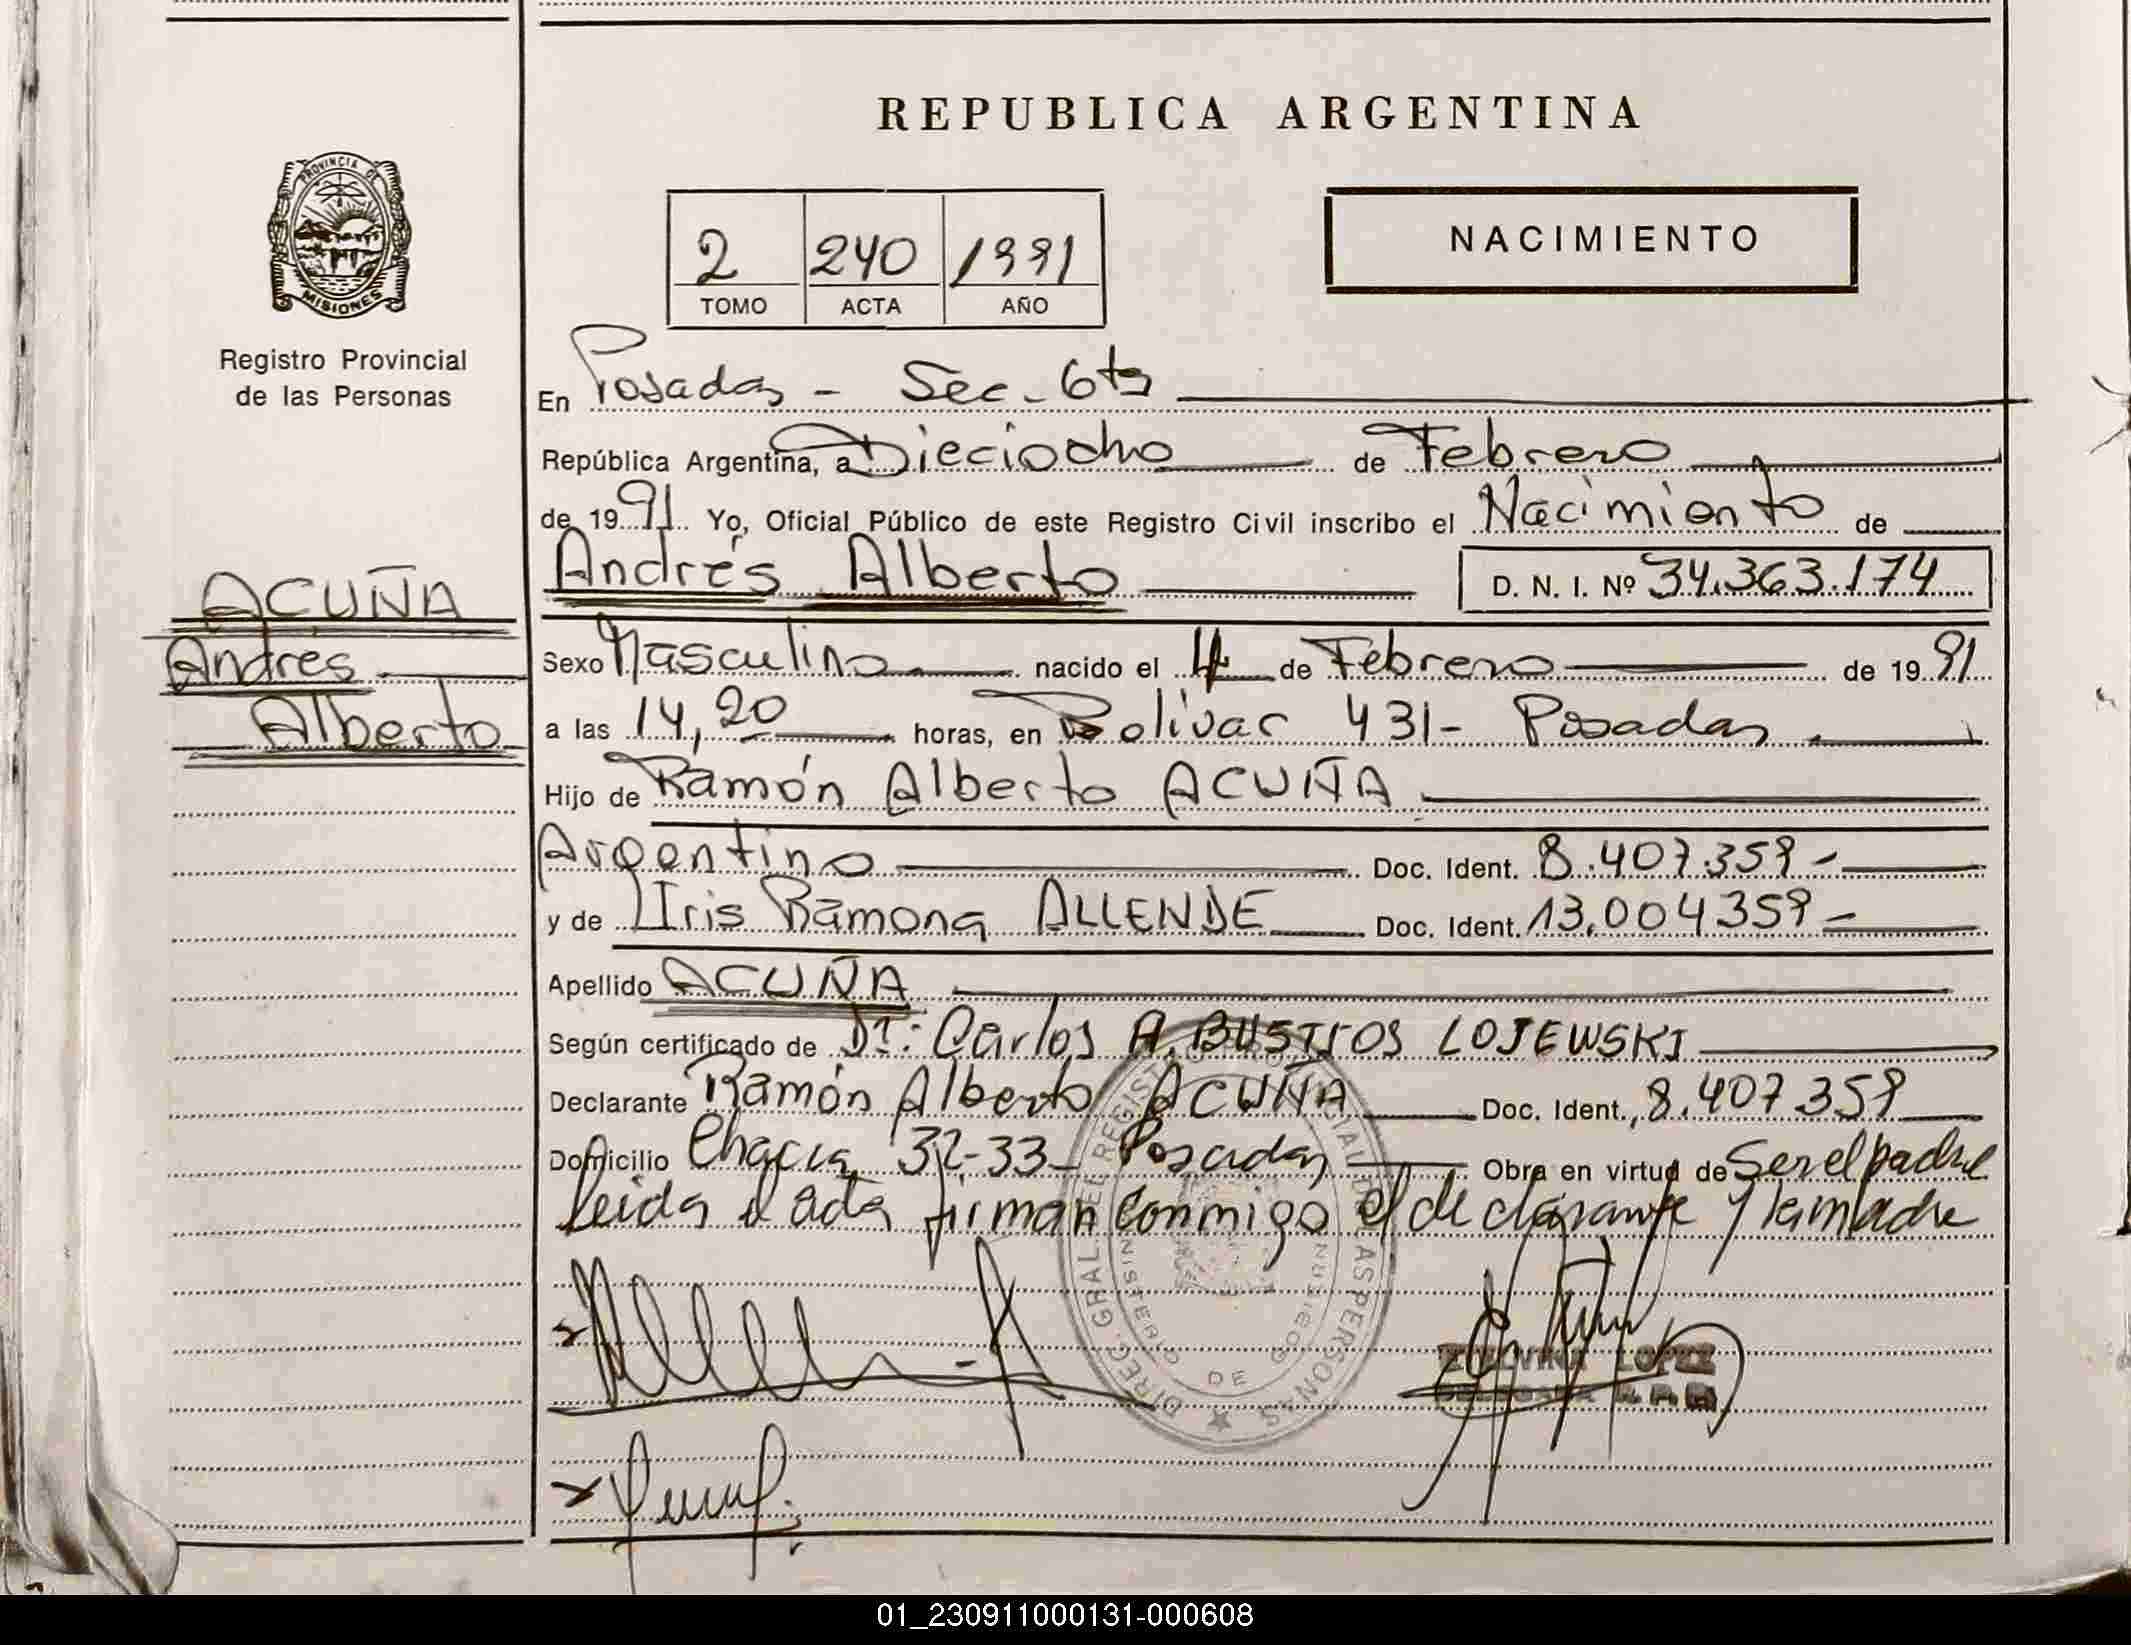 REPUBLICA ARGENTINA
PROVINCIA DE
MISIONES
Registro Provincial
de las Personas
2 240 1991
TOMO ACTA AÑO
NACIMIENTO
En Posadas - Sec. 6ta
República Argentina, a Dieciocho de Febrero
de 1991. Yo, Oficial Público de este Registro Civil inscribo el Nacimiento de
Andrés Alberto D. N. I. Nº 34.363.174
ACUÑA
Andrés
Alberto
Sexo Masculino nacido el 4 de Febrero de 1991
a las 14,20 horas, en Bolivar 431- Posadas
Hijo de Ramón Alberto ACUÑA
Argentino Doc. Ident. 8.407.359-
y de Iris Ramona ALLENDE Doc. Ident. 13.004359-
Apellido ACUÑA
Según certificado de Dr: Carlos A. BUSTOS LOJEWSKI
Declarante Ramón Alberto ACUÑA Doc. Ident. 8.407.359
Domicilio Chacra 32-33- Posadas Obra en virtud de Ser el padre
Leida el acta firman conmigo el declarante y la madre
DIREC. GRAL. DEL REGISTRO PROVINCIAL DE LAS PERSONAS
MINISTERIO DE GOBIERNO
LOPEZ
01_230911000131-000608